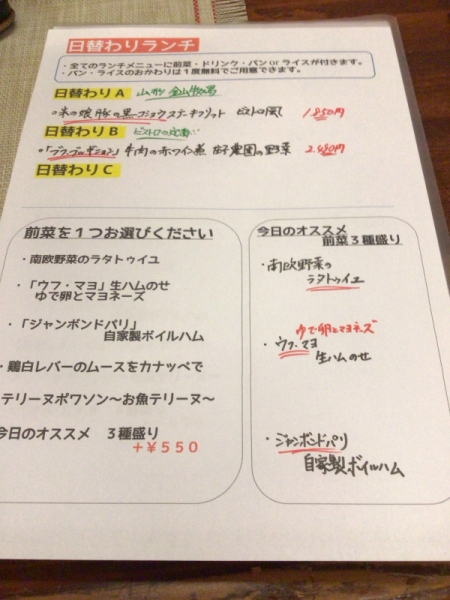 日替わりランチ
・全てのランチメニューに前菜・ドリンク・パン or ライスが付きます。
・パン・ライスのおかわりは１度無料でご用意できます。
日替わり A 山形 金山牧場
米の娘豚の黒コショウステーキフリット ビストロ風 1.850円
日替わり B ビストロの定番
「ブフ・ブルギニョン」牛肉の赤ワイン煮 農園の野菜 2.480円
日替わり C
前菜を１つお選びください
・南欧野菜のラタトゥイユ
・「ウフ・マヨ」生ハムのせ
ゆで卵とマヨネーズ
・「ジャンボンドパリ」
自家製ボイルハム
・鶏白レバーのムースをカナッペで
テリーヌポワソン～お魚テリーヌ～
今日のオススメ ３種盛り
＋￥５５０
今日のオススメ
前菜３種盛り
・南欧野菜の
ラタトゥイユ
ゆで卵とマヨネーズ
・ウフ・マヨ
生ハムのせ
・ジャンボンドパリ
自家製ボイルハム